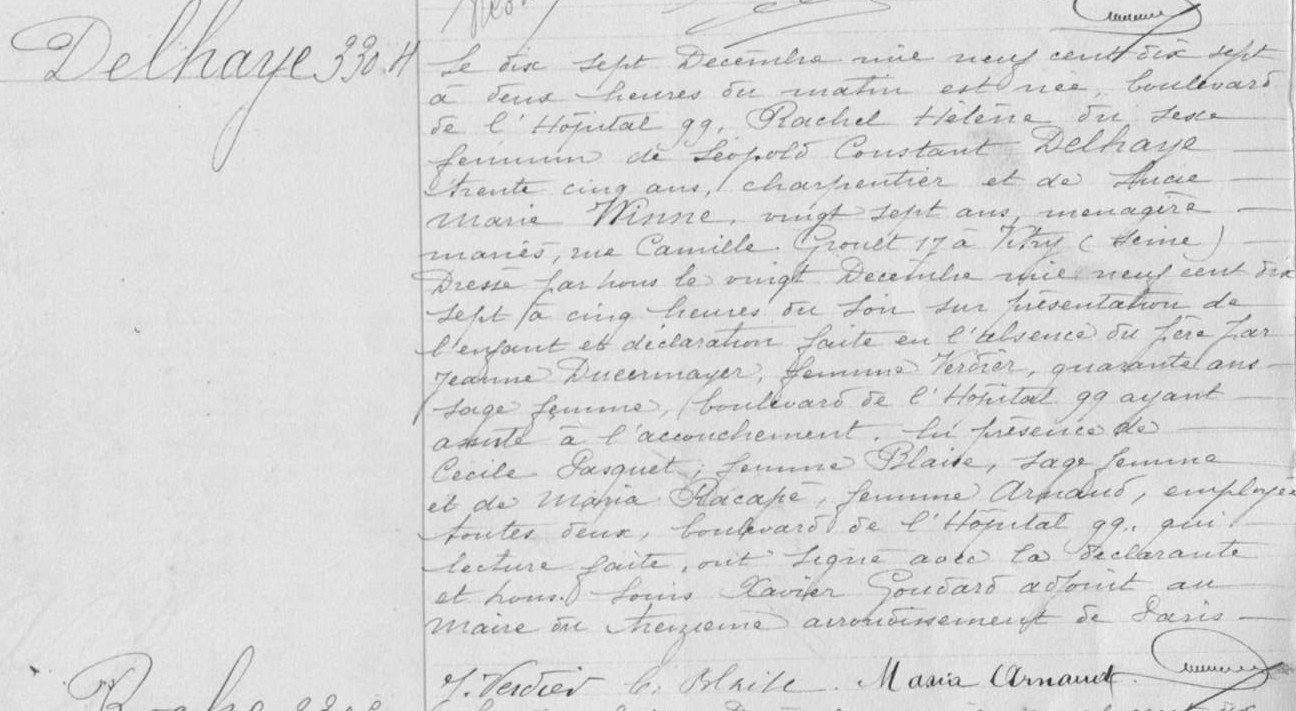 Delhaye 3304
Le dix sept Decembre mil neuf cent dix sept
à deux heures du matin est née, boulevard
de l'Hôpital 99, Rachel Hélène du sexe
feminin de Léopold Constant Delhaye
trente cinq ans, charpentier et de Lucie
Marie Winne, vingt sept ans, menagère
mariés, rue Camille Groult 17 à Vitry (Seine)
Dressé par nous le vingt Decembre mil neuf cent dix
sept à cinq heures du soir sur présentation de
l'enfant et déclaration faite en l'absence du père par
Jeanne Ducermayer, femme Verdier, quarante ans
sage femme, boulevard de l'Hôpital 99 ayant
assisté à l'accouchement. En présence de
Cecile Pasquet, femme Blaise, sage femme
et de Maria Racapé, femme Arnaud, employée
toutes deux, boulevard de l'Hôpital 99. qui
lecture faite, ont signé avec la déclarante
et nous. Louis Xavier Goudard adjoint au
Maire du treizieme arrondissement de Paris
J. Verdier C. Blaise. Maria Arnaud.